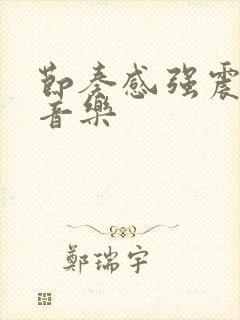 節奏感强震
音樂
鄭瑞宇